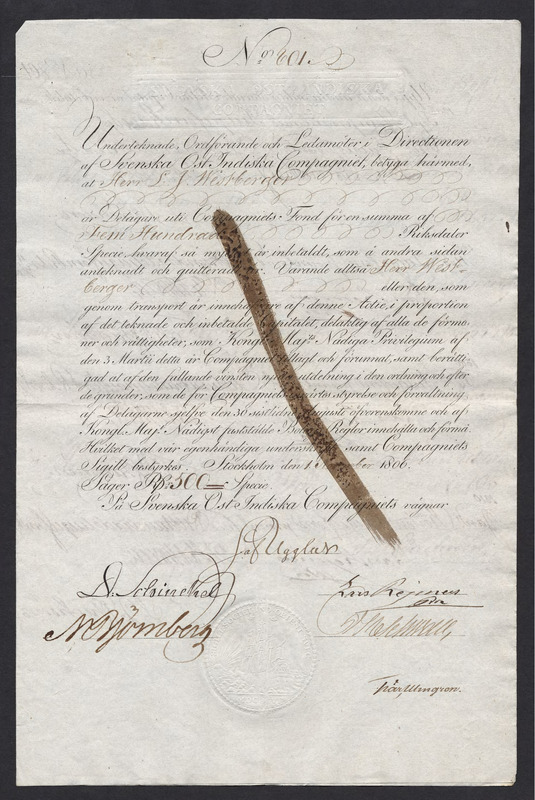 No 601.
Underteknade, Ordförande och Ledamöter i Directionen
af Svenska Ost Indiska Compagniet, betyga härmed,
at Herr L J Westberger
är Delägare uti Compagniets Fond för en summa af
Fem Hundrade Riksdaler
Specie, hvaraf så mycket är inbetaldt, som å andra sidan
anteknadt och quitteradt är. Varande alltså Herr West-
berger eller den, som
genom transport är innehafvare af denne Actie, i proportion
af det teknade och inbetalde Capitalet, delaktig af alla de förmo-
ner och rättigheter, som Kongl. Maj:ts Nådiga Privilegium af
den 3 Martii detta år Compagniet tillagt och förunnat, samt berätti-
gad at af den fallande vinsten njuta utdelning i den ordning och efter
de grunder, som de för Compagniets styrelse och förvaltning
af Delägarne sjelfve den 30 sistlidne Augusti öfverenskomne och af
Kongl. Maj:t Nådigst faststälde Regler innehålla och förmå.
Hvilket med vår egenhändiga underskrift samt Compagniets
Sigill bestyrkes. Stockholm den 1 1806.
Säger R:dr 500 Specie.
På Svenska Ost Indiska Compagniets vägnar
af Ugglas
N Björnberg